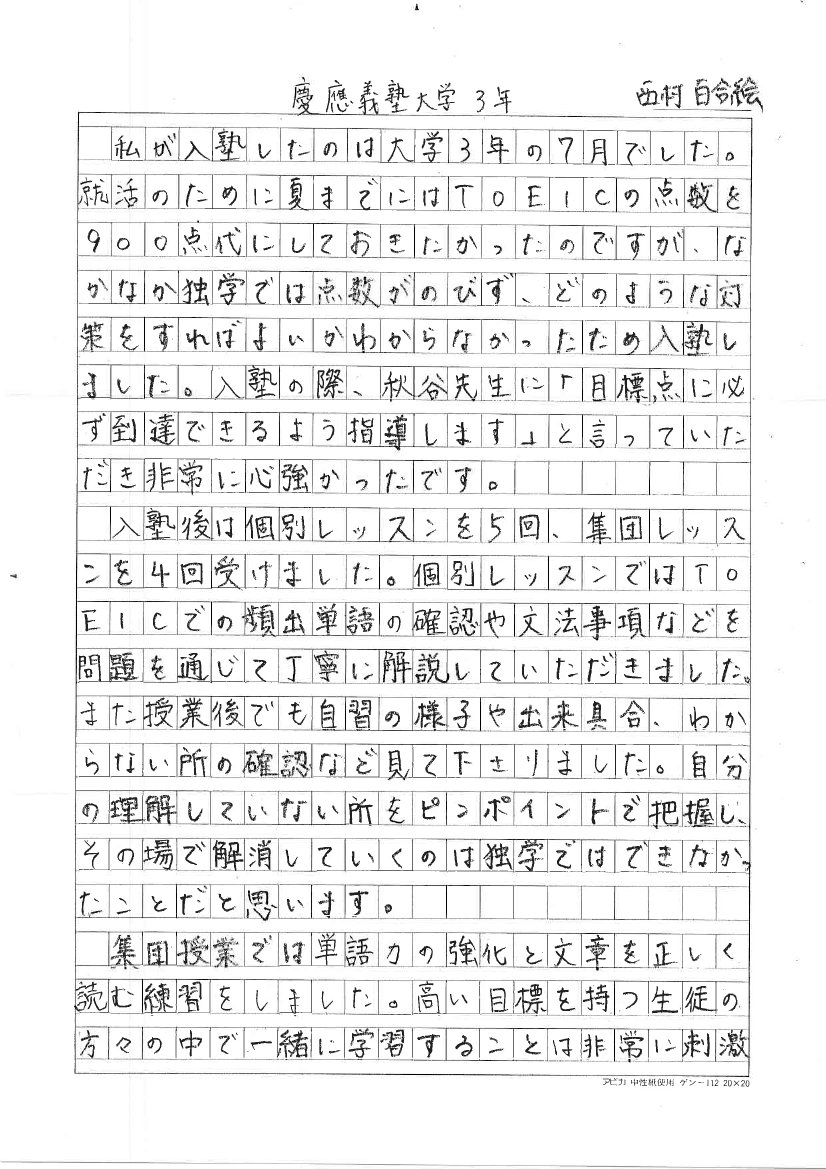 慶應義塾大学 3年 西村 百合絵
私が入塾したのは大学3年の7月でした。
就活のために夏までにはTOEICの点数を
900点代にしておきたかったのですが、な
かなか独学では点数がのびず、どのような対
策をすればよいかわからなかったため入塾し
ました。入塾の際、秋谷先生に「目標点に必
ず到達できるよう指導します」と言っていた
だき非常に心強かったです。
入塾後は個別レッスンを5回、集団レッス
ンを4回受けました。個別レッスンではTO
EICでの頻出単語の確認や文法事項などを
問題を通じて丁寧に解説していただきました。
また授業後でも自習の様子や出来具合、わか
らない所の確認など見て下さりました。自分
の理解していない所をピンポイントで把握し、
その場で解消していくのは独学ではできなかっ
たことだと思います。
集団授業では単語力の強化と文章を正しく
読む練習をしました。高い目標を持つ生徒の
方々の中で一緒に学習することは非常に刺激
アピカ 中性紙使用 ゲンー112 20×20